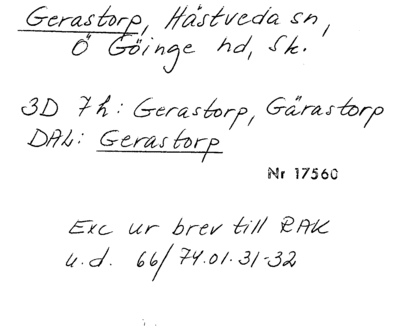 Gerastorp, Hästveda sn,
Ö Göinge hd, Sk.
3D 7h: Gerastorp, Gärastorp
DAL: Gerastorp
Nr 17560
Exc ur brev till RAK
u.d. 66/74.01.31-32